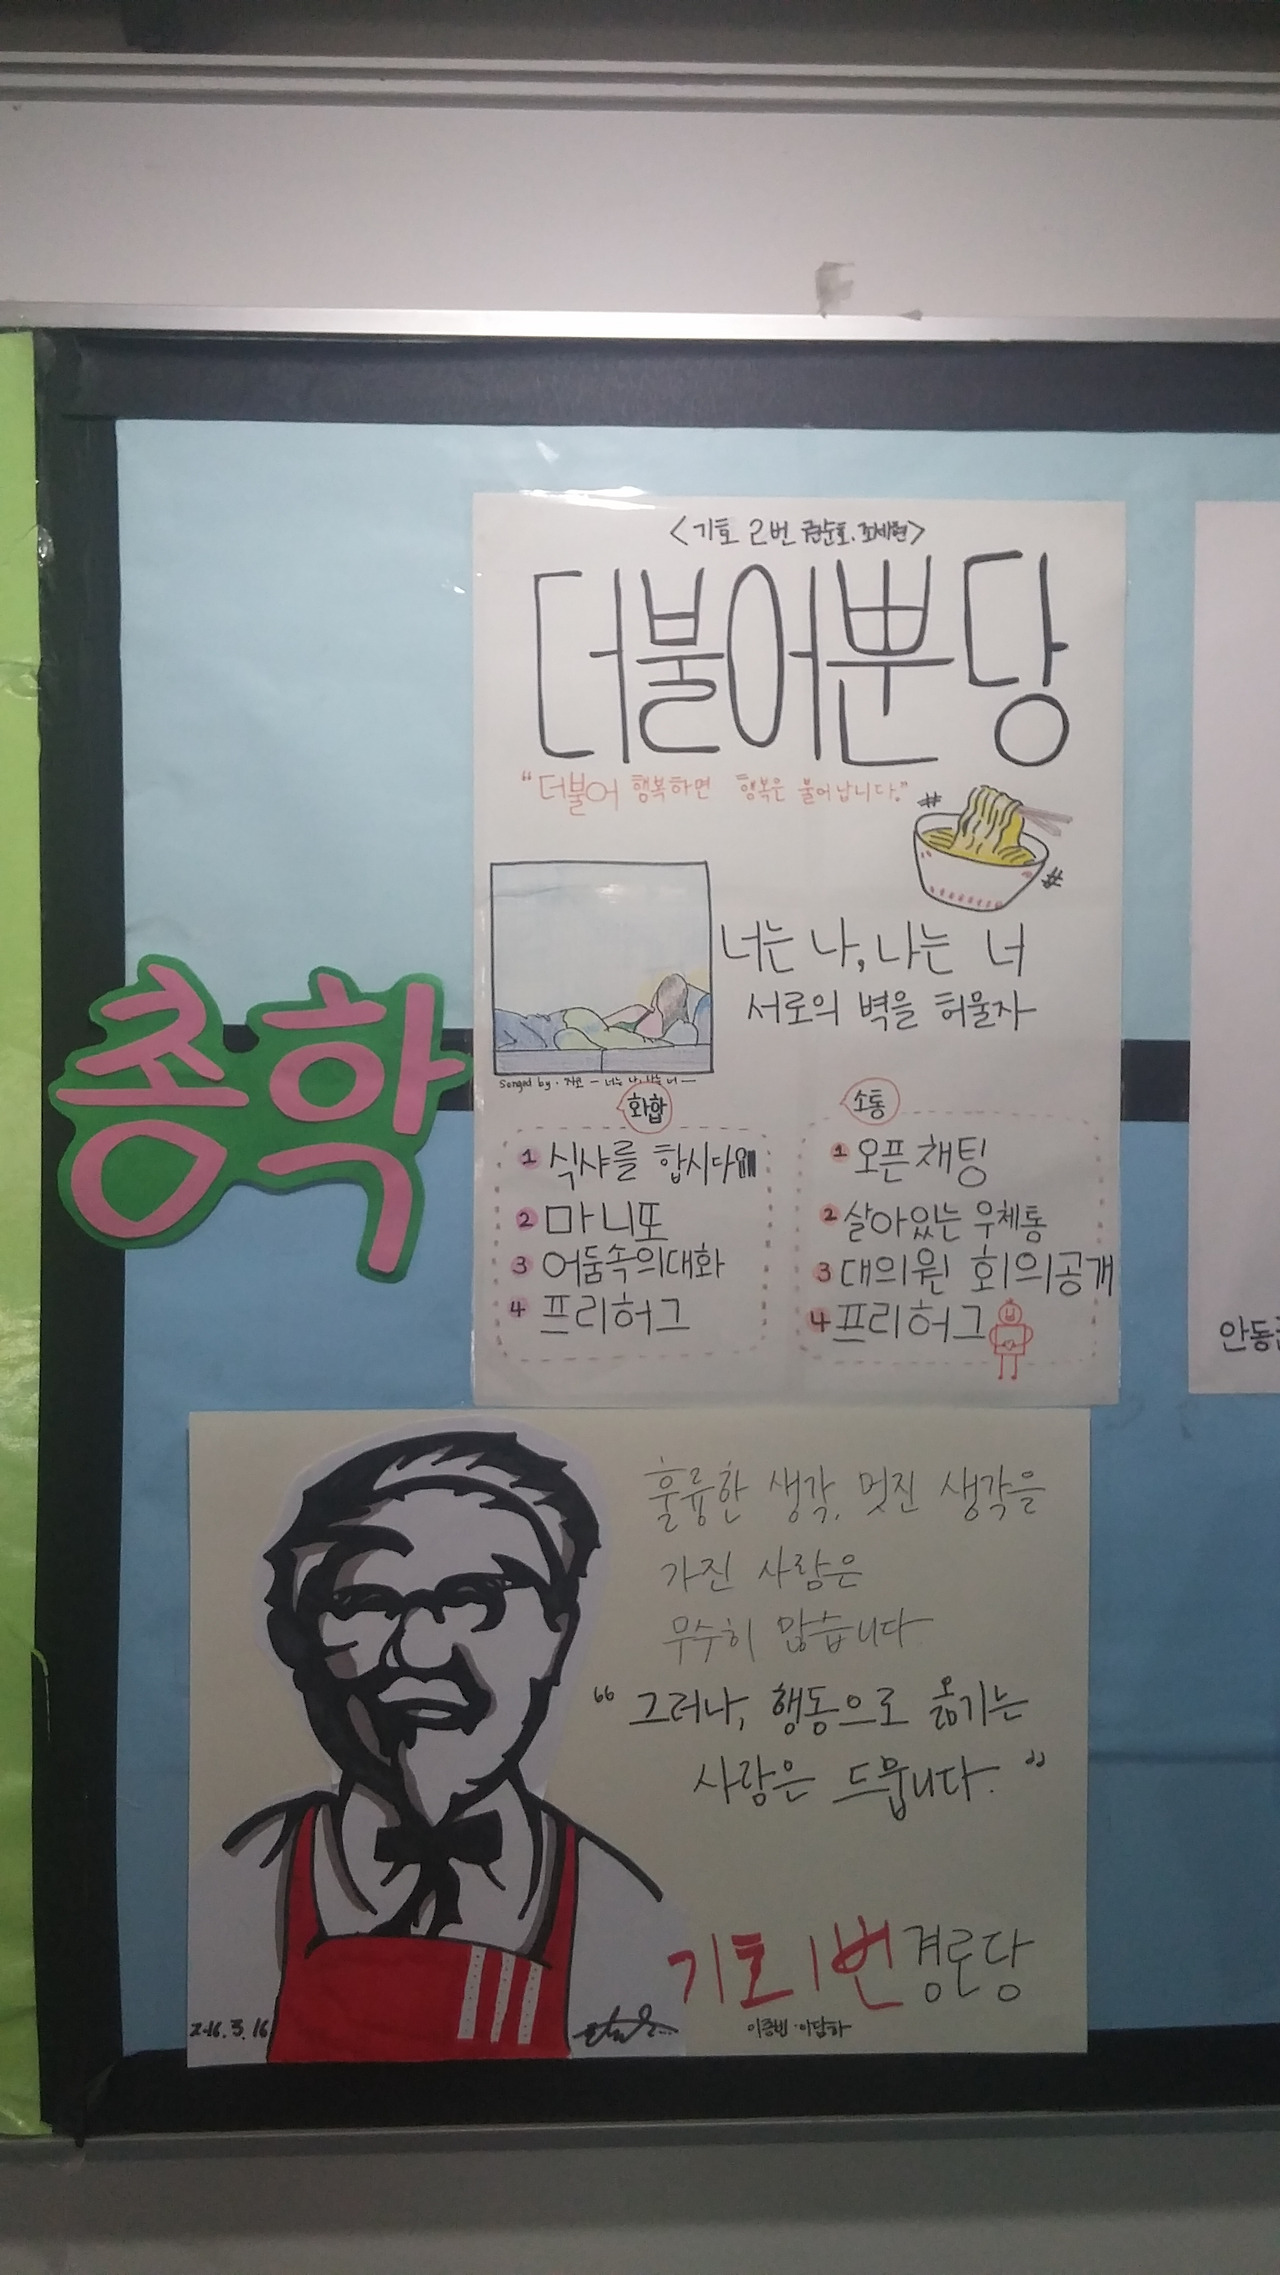 총학
<기호 2번 금순호. 조세현>
더불어뿐당
"더불어 행복하면 행복은 불어납니다."
#
#
너는 나, 나는 너
서로의 벽을 허물자
Songed by. 지코 - 너는 나 나는 너 -
화합
1 식샤를 합시다
2 마니또
3 어둠속의대화
4 프리허그
소통
1 오픈채팅
2 살아있는 우체통
3 대의원 회의공개
4 프리허그
안동
훌륭한 생각, 멋진 생각을
가진 사람은
무수히 많습니다
"그러나, 행동으로 옮기는
사람은 드뭅니다."
기호1번경로당
16. 3. 16